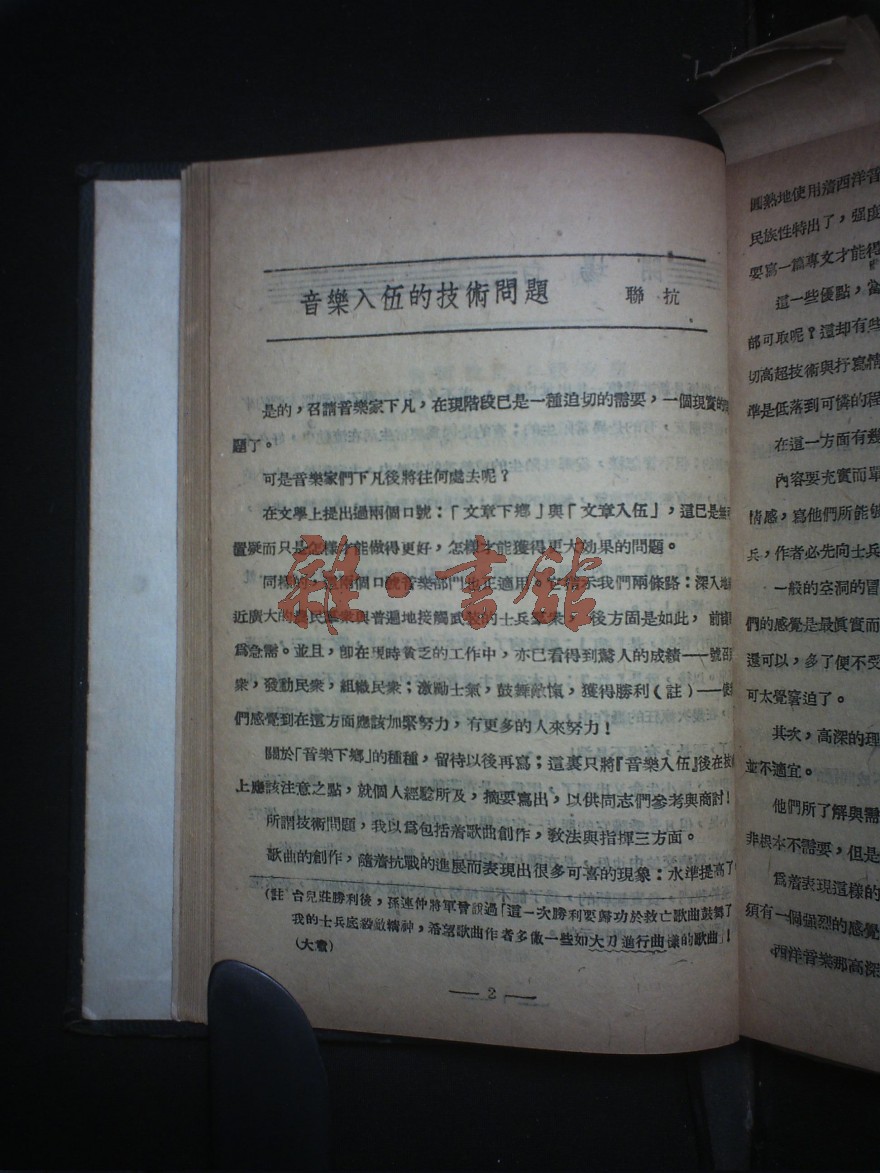 音樂入伍的技術問題 聯抗
是的，召請音樂家下凡，在現階段已是一種迫切的需要，一個現實的
題了。
可是音樂家們下凡後將往何處去呢？
在文學上提出過兩個口號：「文章下鄉」與「文章入伍」，這已是無
置疑而只是怎樣才能做得更好，怎樣才能獲得更大効果的問題。
同樣的，這兩個口號音樂部門也正適用。它指示我們兩條路：深入地
近廣大的農民羣衆與普遍地接觸武裝的士兵羣衆，後方固是如此，前
爲急需。並且，卽在現時貧乏的工作中，亦已看得到驚人的成績——號召
衆，發動民衆，組織民衆；激勵士氣，鼓舞敵愾，獲得勝利（註）——使
們感覺到在這方面應該加緊努力，有更多的人來努力！
關於「音樂下鄉」的種種，留待以後再寫；這裏只將『音樂入伍』後在技
上應該注意之點，就個人經驗所及，摘要寫出，以供同志們參考與商討！
所謂技術問題，我以爲包括着歌曲創作，敎法與指揮三方面。
歌曲的創作，隨着抗戰的進展而表現出很多可喜的現象：水準提高了
（註 台兒莊勝利後，孫連仲將軍曾說過「這一次勝利要歸功於救亡歌曲鼓舞了
我的士兵底殺敵精神，希望歌曲作者多做一些如大刀進行曲樣的歌曲」！
（大意）
— 2 —
圓熟地使用着西洋音
民族性特出了，强度
要寫一篇專文才能得
這一些優點，當
部可取呢？這却有些
切高超技術與抒寫情
準是低落到可憐的程
在這一方面有幾
內容要充實而單
情感，寫他們所能够
兵，作者必先向士兵
一般的空洞的冒
們的感覺是最眞實而
還可以，多了便不受
可太覺窘迫了。
其次，高深的理
並不適宜。
他們所了解與需
非根本不需要，但是
爲着表現這樣的
須有一個强烈的感覺
西洋音樂那高深
雜·書館